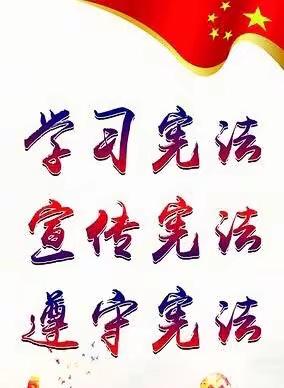 学习宪法
宣传宪法
遵守宪法